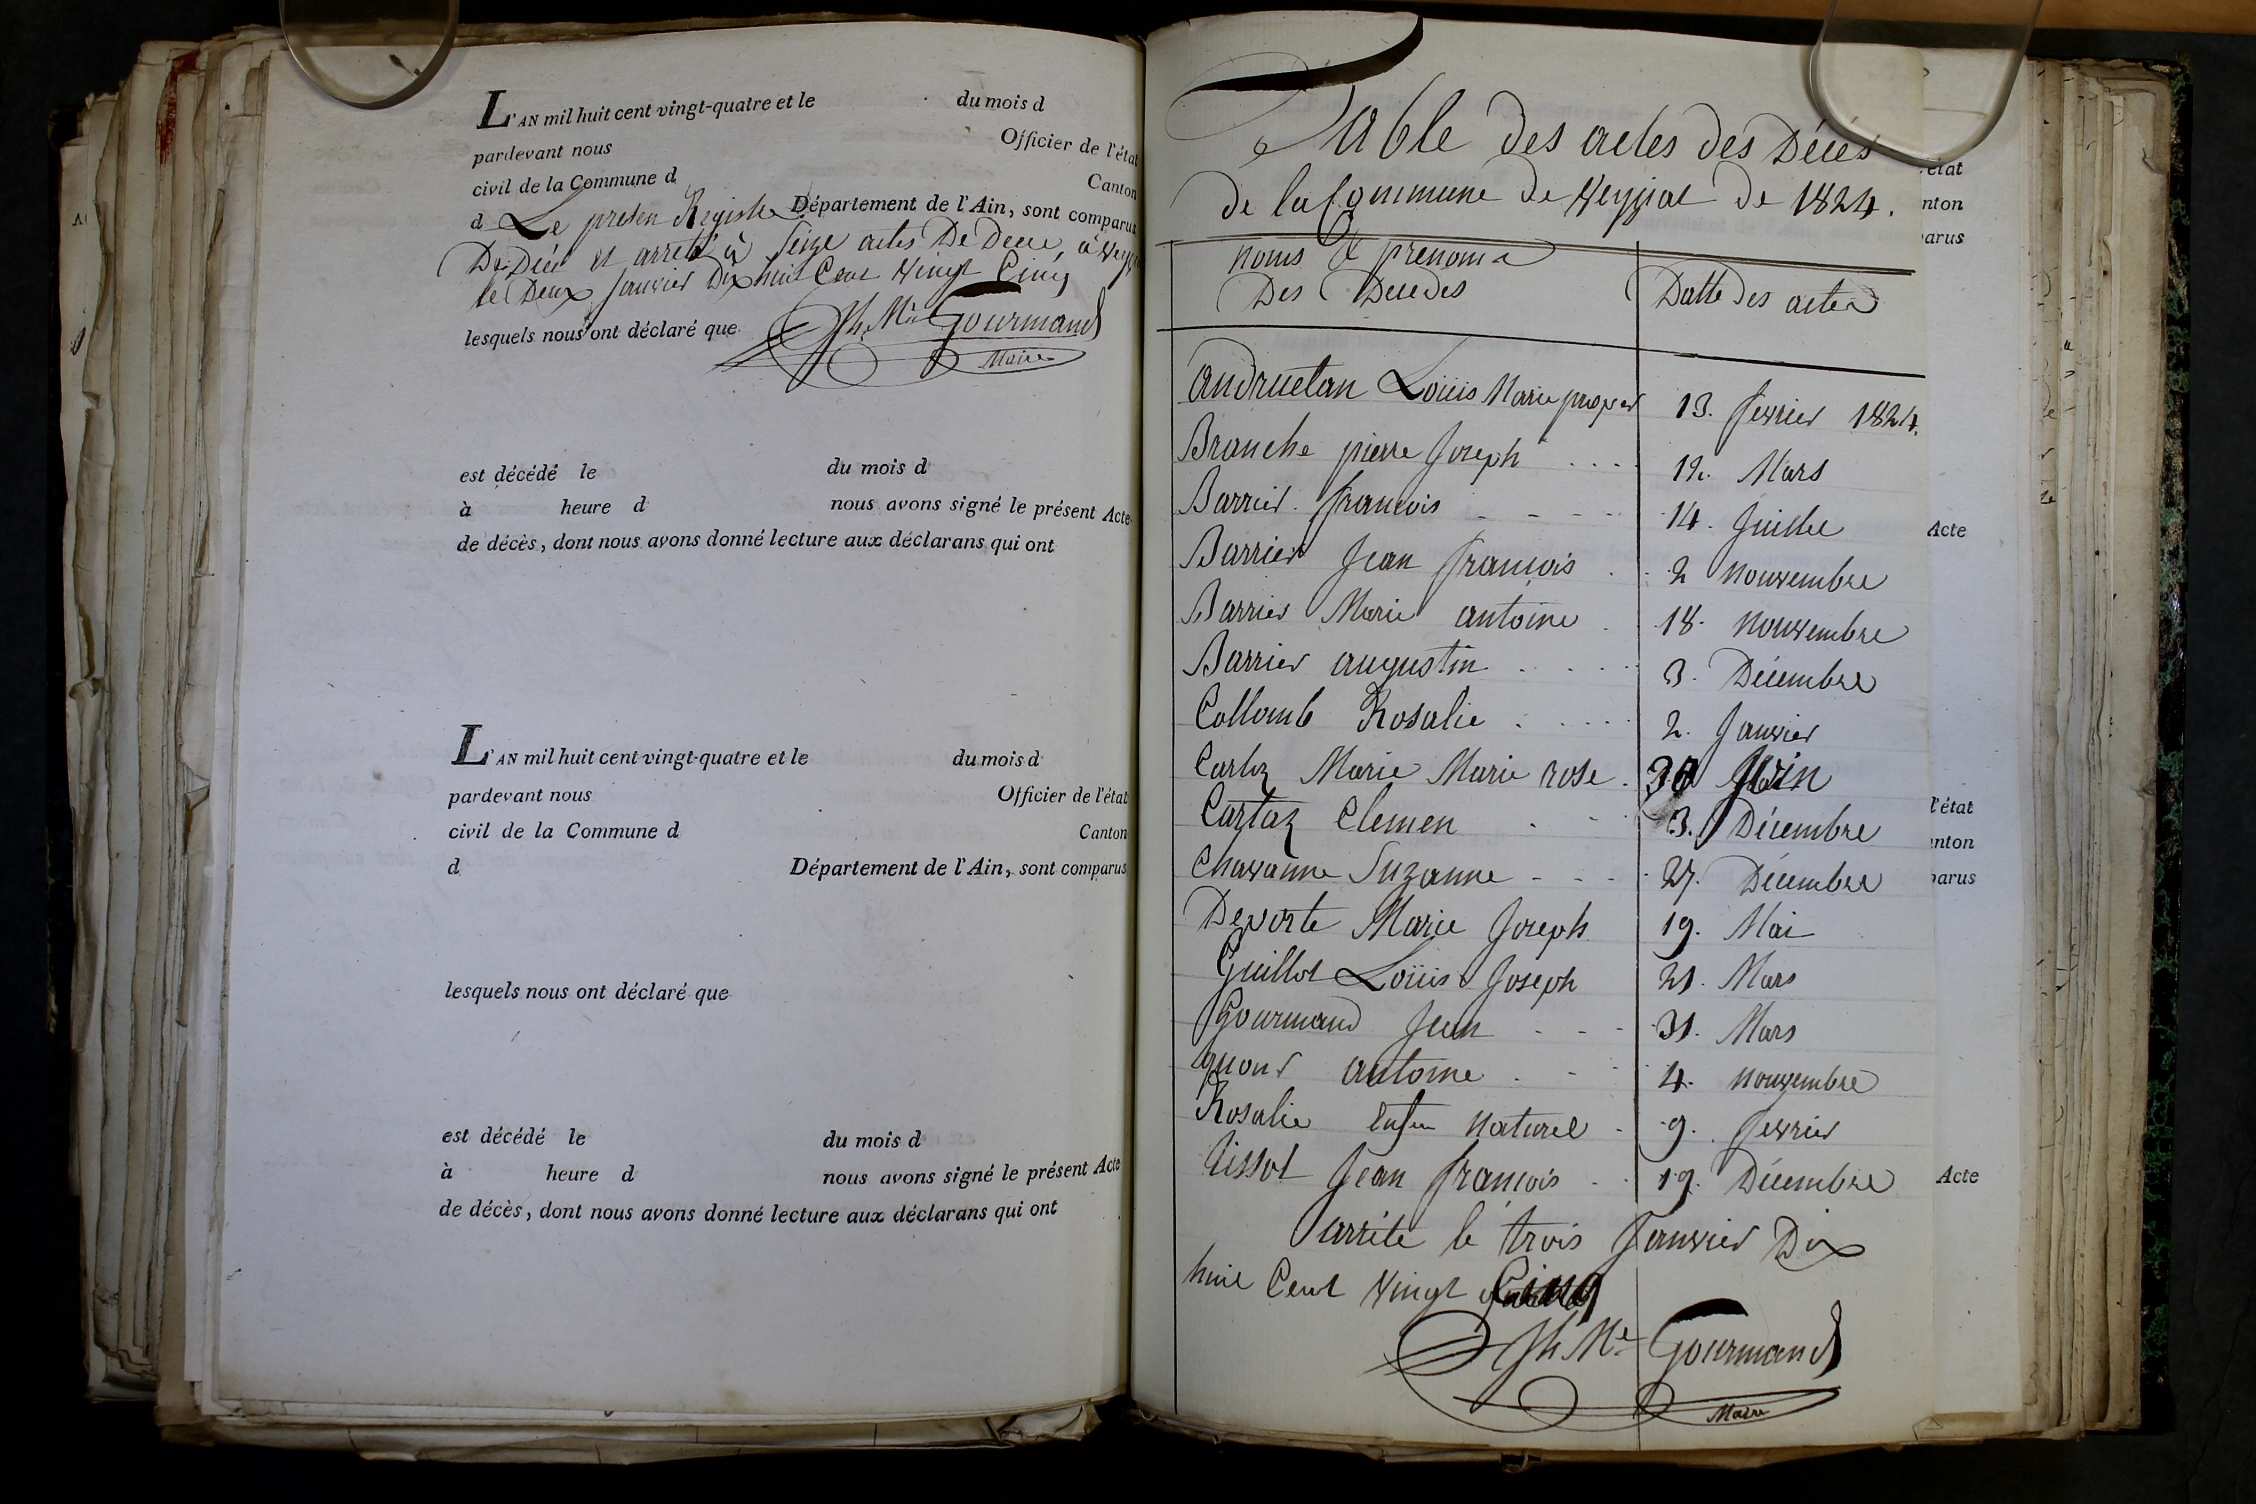 L'AN mil huit cent vingt-quatre et le du mois d
pardevant nous Officier de l'état
civil de la Commune d Canton
d Département de l'Ain, sont comparus
Le presen Registre
De Décé et arreté à Seize actes De Decé, à
le Deux Janvier Dix huit Cent Vingt Cinq
lesquels nous ont déclaré que
Jh Mie Gourmand
Maire
est décédé le du mois d
à heure d nous avons signé le présent Acte
de décès, dont nous avons donné lecture aux déclarans qui ont
L'AN mil huit cent vingt-quatre et le du mois d
pardevant nous Officier de l'état
civil de la Commune d Canton
d Département de l'Ain, sont comparus
lesquels nous ont déclaré que
est décédé le du mois d
à heure d nous avons signé le présent Acte
de décès, dont nous avons donné lecture aux déclarans qui ont
Table des actes des Décés
de la Commune de Veyziat de 1824.
noms & prenoms
Des Decedes
Datte des actes
andruetan Loüis Marie prosper 13. fevrier 1824.
Branche pierre Joseph .... 12. Mars
Barrier francois - - - - 14. Juillet
Barrier Jean francois . . 2 nouvembre
Barrier Marie antoine . 18. nouvembre
Barrier augustin ..... 3. Décembre
Collomb Rosalie ..... 2. Janvier
Cartoz Marie Marie rose . 30 Juin
Cartaz Clemen . - - 3. Décembre
Chavanne Suzanne - - - 27. Décembre
Devorte Marie Joseph 19. Mai
Guillot Loüis Joseph 21. Mars
Gourmand Jean - - - 31. Mars
antoine . - - 4. nouvembre
Rosalie enfen naturel - 9. fevrier
tissot Jean francois . . 19. Décembre
arrete le trois Janvier Dix
huit Cent Vingt Cinq
Jh Me Gourmand
Maire
état
nton
arus
Acte
l'état
anton
parus
Acte